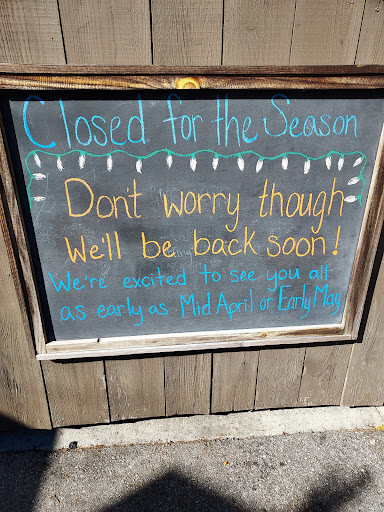 Closed for the Season
Don't worry though
We'll be back soon!
We're excited to see you all
as early as Mid April or Early May